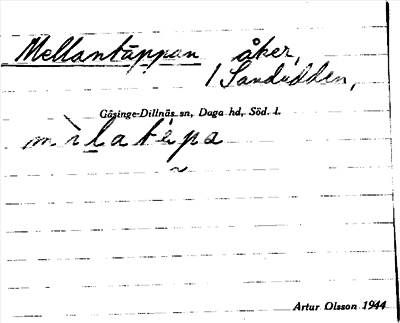 Mellantäppan åker,
/ Sandudden,
Gåsinge-Dillnäs sn, Daga hd, Söd. l.
mìlatépa
Artur Olsson 1944